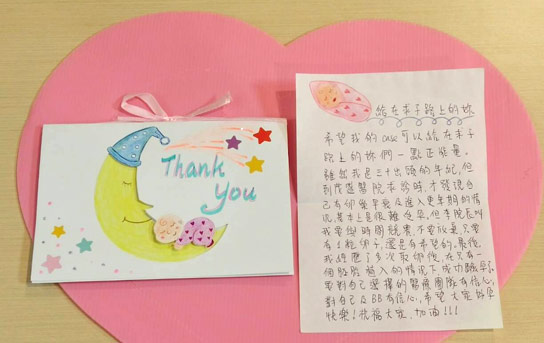 Thank
You
給在求子路上的妳
希望我的case可以給在求子
路上的妳們一點正能量。
雖然我是三十出頭的年紀,但
到茂盛醫院求診時,才發現自
己有卵巢早衰及進入更年期的情
況,基本上是很難受孕,但李院長叫
我要與時間競賽不要放棄,只要
有1粒卵子,還是有希望的,最後,
我經歷了多次取卵後,在只有一
個胚胎植入的情況下成功
要對自己選擇的醫療團隊有信心,
對自己及BB有信心,希望大家好孕
快樂!祝福大家,加油!!!